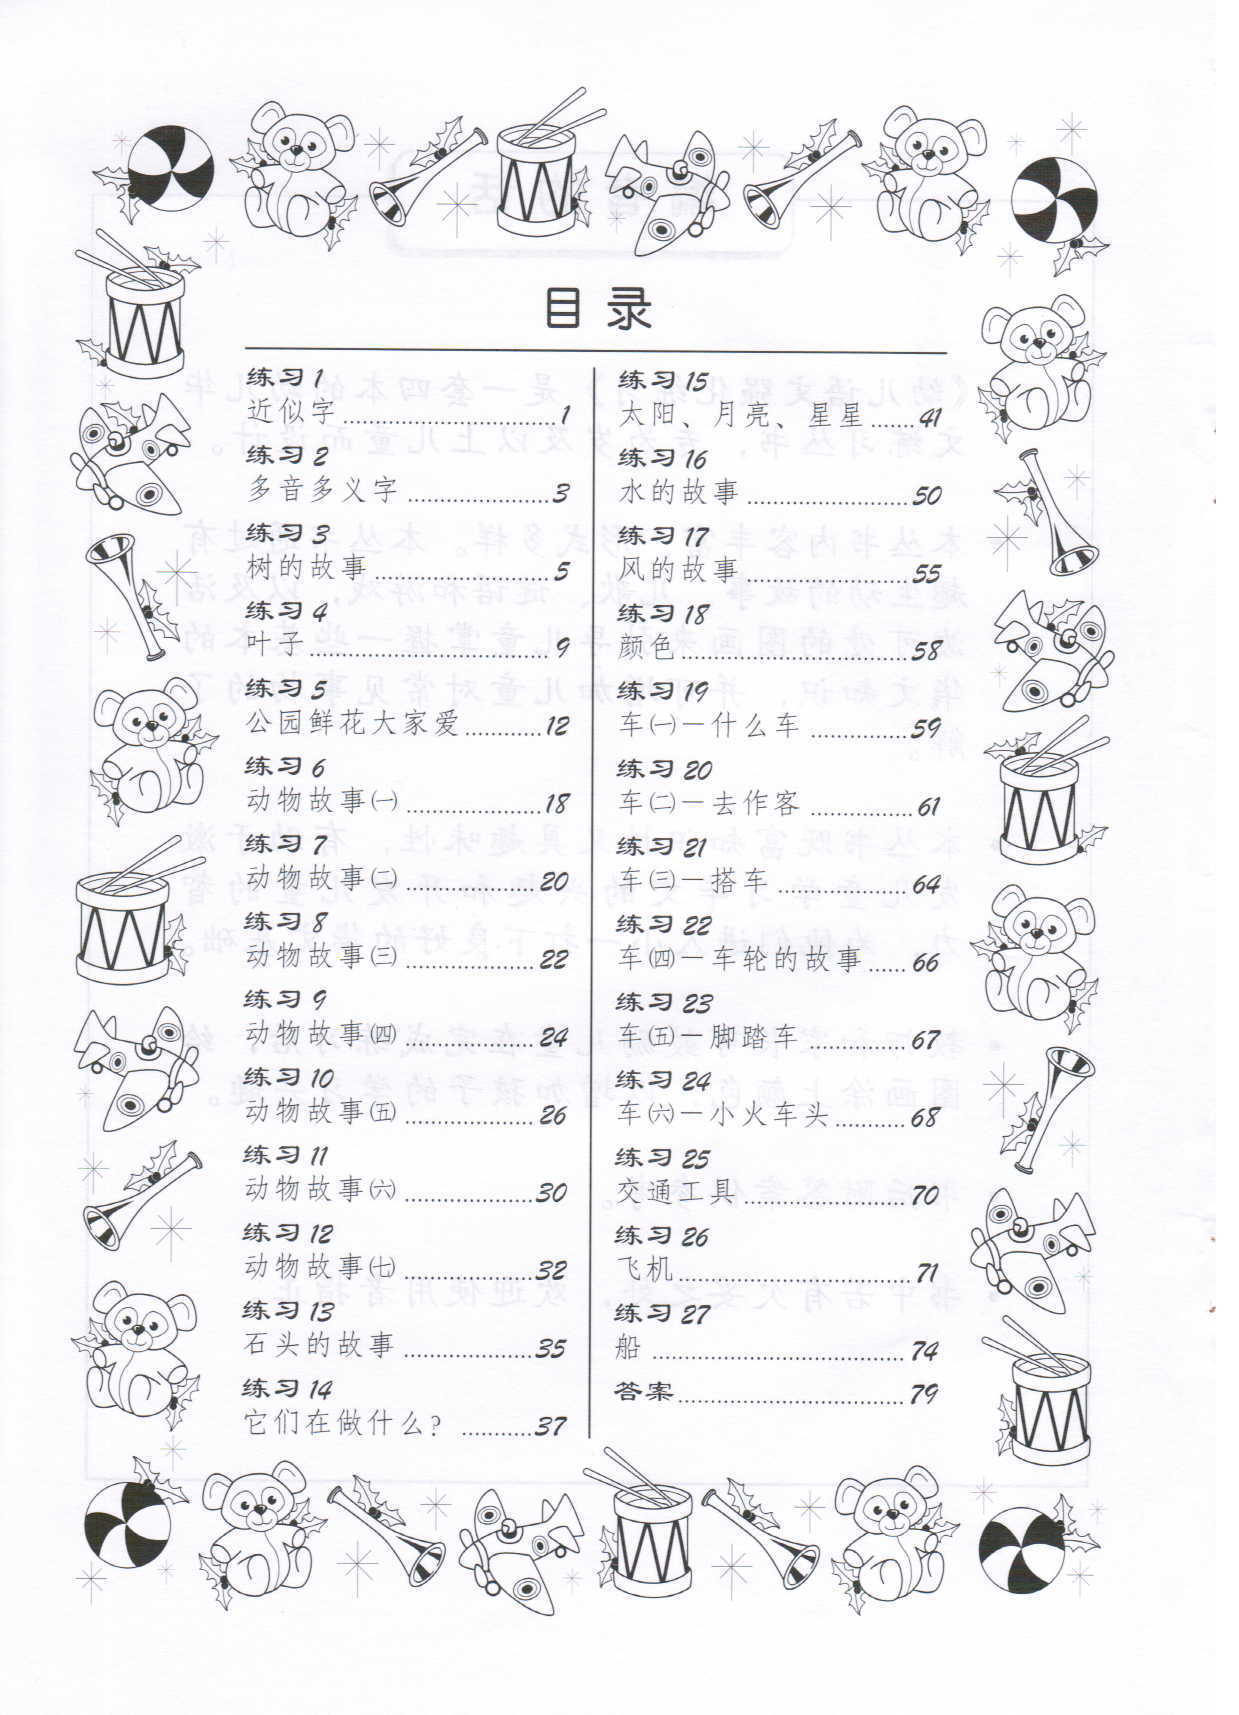 目录
练习1
近似字 1
练习2
多音多义字 3
练习3
树的故事 5
练习4
叶子 9
练习5
公园鲜花大家爱 12
练习6
动物故事㈠ 18
练习7
动物故事㈡ 20
练习8
动物故事㈢ 22
练习9
动物故事㈣ 24
练习10
动物故事㈤ 26
练习11
动物故事㈥ 30
练习12
动物故事㈦ 32
练习13
石头的故事 35
练习14
它们在做什么? 37
练习15
太阳、月亮、星星 41
练习16
水的故事 50
练习17
风的故事 55
练习18
颜色 58
练习19
车㈠－什么车 59
练习20
车㈡－去作客 61
练习21
车㈢－搭车 64
练习22
车㈣－车轮的故事 66
练习23
车㈤－脚踏车 67
练习24
车㈥－小火车头 68
练习25
交通工具 70
练习26
飞机 71
练习27
船 74
答案 79